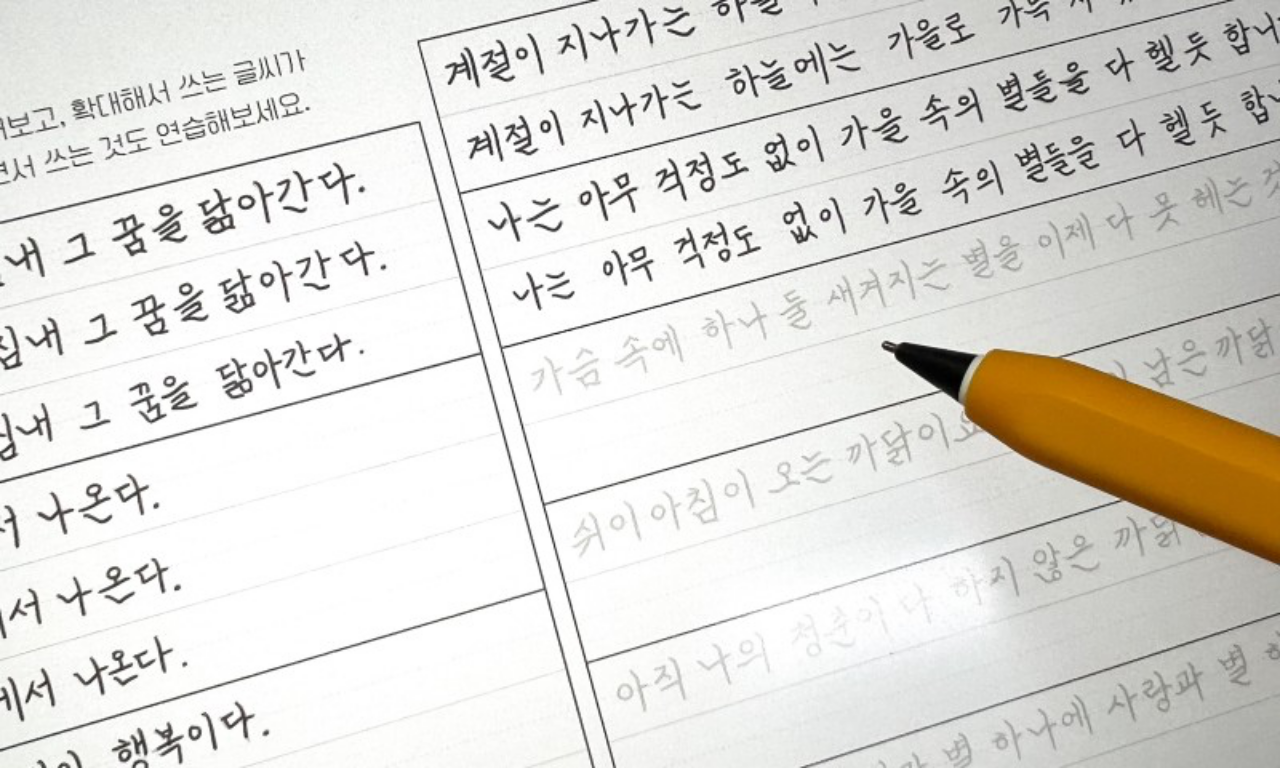 확대해서 쓰는 글씨가
쓰는 것도 연습해보세요.
그 꿈을 닮아간다.
그 꿈을 닮아간다.
그 꿈을 닮아간다.
나온다.
나온다.
나온다.
행복이다.
계절이 지나가는
계절이 지나가는 하늘에는 가을로 가득
나는 아무 걱정도 없이 가을 속의 별들을 다 헬 듯
나는 아무 걱정도 없이 가을 속의 별들을 다 헬 듯
가슴 속에 하나 둘 새겨지는 별을 이제 다 못 헤는
쉬이 아침이 오는 까닭이요 남은 까닭
아직 나의 청춘이 다 하지 않은 까닭
별 하나에 사랑과 별